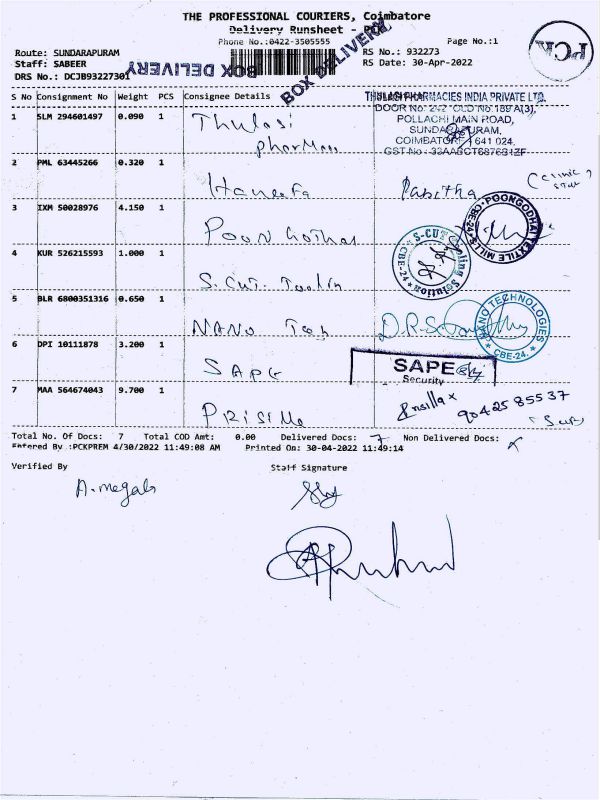 THE PROFESSIONAL COURIERS, Coimbatore
Delivery Runsheet - PCK
Phone No.:0422-3505555 Page No.:1
Route: SUNDARAPURAM RS No.: 932273
Staff: SABEER RS Date: 30-Apr-2022
DRS No.: DCJB93227301
BOX DELIVERY
BOX DELIVERY
PCK
S No Consignment No Weight PCS Consignee Details
THULASI PHARMACIES INDIA PRIVATE LTD.
DOOR No. 242 OLD No.189 A(3),
POLLACHI MAIN ROAD,
SUNDARAPURAM,
COIMBATORE 641 024.
1 SLM 294601497 0.090 1 Thulasi
pharmacy
2 PML 63445266 0.320 1 Haneefa Pabitha
3 IXM 50028976 4.150 1 Poongothai
POONGODHAI TEXTILE MILLS CBE-24
4 KUR 526215593 1.000 1 S.CUT. Toolin
S-CUT Tooling Solution CBE-24
5 BLR 6800351316 0.650 1 NANO Tech
NANO TECHNOLOGIES CBE-24.
6 DPI 10111878 3.200 1 SAPE
SAPE
Security
7 MAA 564674043 9.700 1 9042585537
Total No. Of Docs: 7 Total COD Amt: 0.00 Delivered Docs: 7 Non Delivered Docs:
Entered By :PCKPREM 4/30/2022 11:49:08 AM Printed On: 30-04-2022 11:49:14
Verified By Staff Signature
A.megala